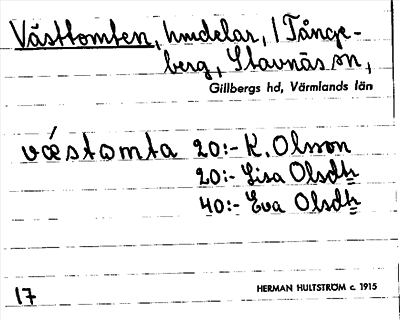 Västtomten, hmdelar, i Tånge-
berg, Stavnäs sn,
Gillbergs hd, Värmlands län
væ´stomta 20:- K. Olsson
20:- Lisa Olsdtr
40:- Eva Olsdtr
17
HERMAN HULTSTRÖM c. 1915